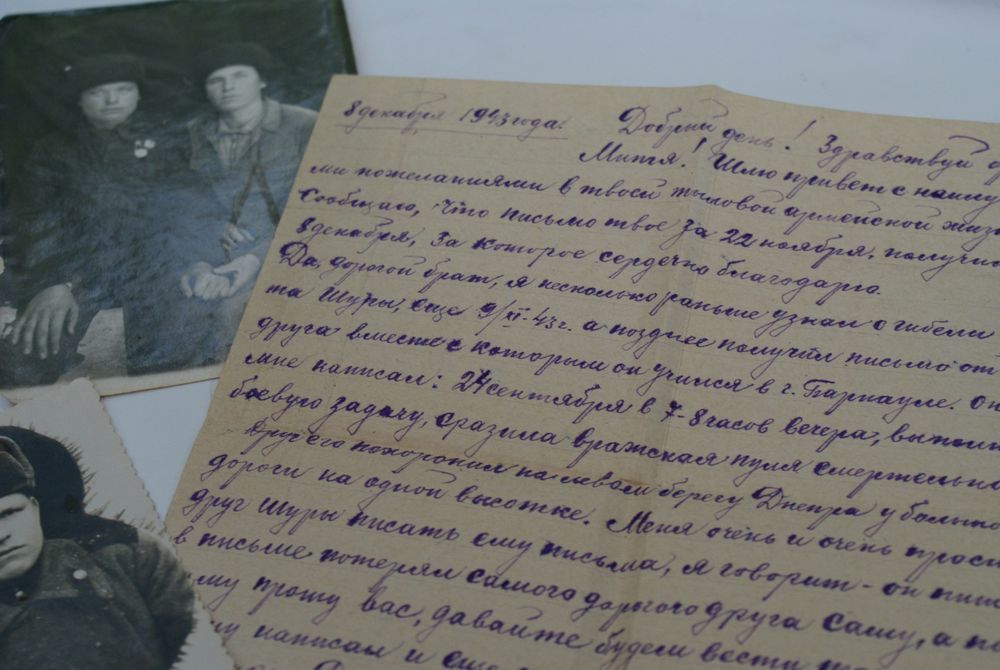 8 декабря 1943 года. Добрый день! Здравствуй
Митя! Шлю привет с наилу
ми пожеланиями в твоей тыловой армейской жизн
Сообщаю, что письмо твое за 22 ноября, получил
8 декабря, за которое сердечно благодарю.
Да, дорогой брат, я несколько раньше узнал о гибели
та Шуры, еще 9/XI-43 г. а позднее получил письмо от
друга вместе с которым он учился в г. Барнауле. Он
мне написал: 24 сентября в 7-8 часов вечера, выполн
боевую задачу, сразила вражеская пуля смертельно
Друг его похоронил на левом берегу Днепра у больш
дороги на одной высотке. Меня очень и очень проси
друг Шуры писать ему письма, я говорит - он пиш
в письме потерял самого дорогого друга Сашу, а по
му прошу вас, давайте будем вести
написал и еще